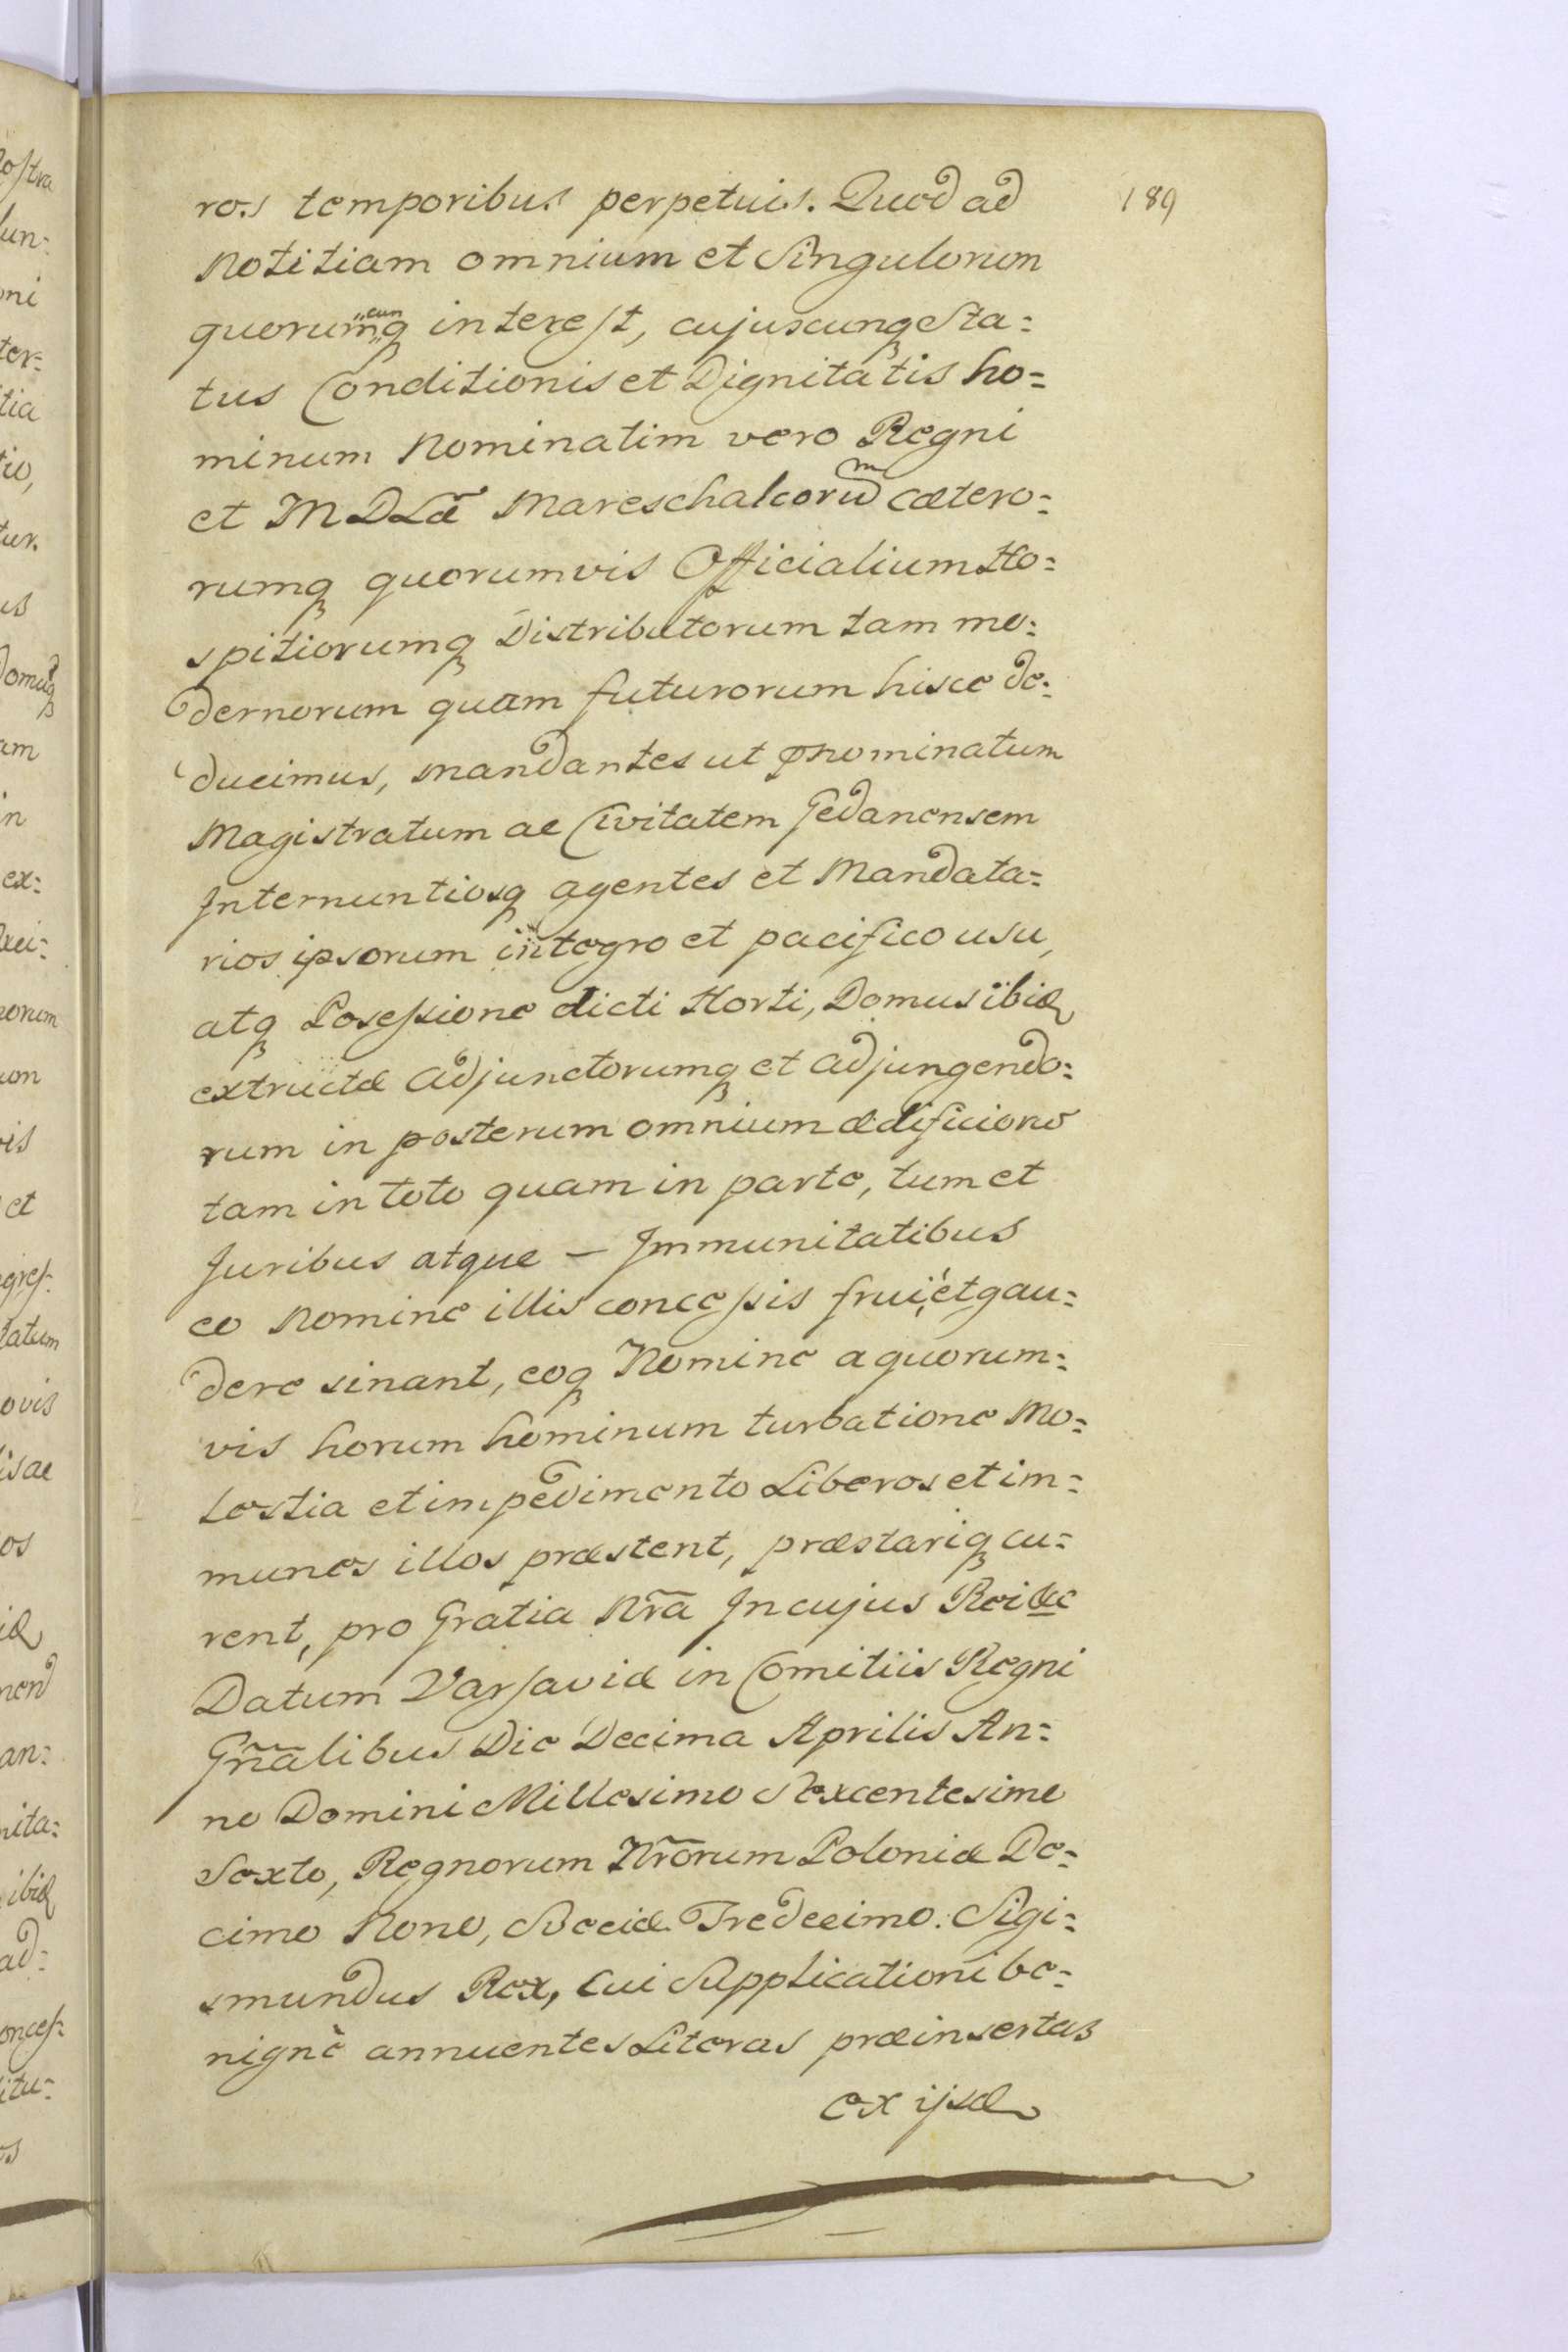 189
ros temporibus perpetuis. Quod ad
Notitiam omnium et Singulorum
quorum cun q interest, cujuscunq Sta=
tus Conditionis et Dignitatis ho=
minum Nominatim vero Regni
et M D Læ Mareschalcorum cætero=
rumq quorumvis Officialium Ho=
spitiorumq Distributorum tam mo=
dernorum quam futurorum hisce de=
ducimus, mandantes ut prnominatum
Magistratum ac Civitatem Gedanensem
Internuntiosq agentes et Mandata=
rios ipsorum integro et pacifico usu,
atq Posessione dicti Horti, Domus ibid
extructæ adjunctorumq et adjungendo=
rum in posterum omnium ædificiorū
tam in toto quam in parte, tum et
Juribus atque – Immunitatibus
eo Nomine illis concessis frui, et gau=
dere sinant, eoq Nomine a quorum=
vis horum hominum turbatione Mo=
lestia et impedimento Liberos et im=
munes illos præstent, præstariq cu=
rent, pro Gratia Nrã In cujus Rei &c
Datum Varsaviæ in Comitiis Regni
Gñalibus Die Decima Aprilis An=
no Domini Millesimo Sexcentesimo
Sexto, Regnorum Nrõrum Poloniæ De=
cimo Nono, Sveciæ Tredecimo. Sigi=
smundus Rex, Cui Supplicationi be=
nignè annuentes Literas præinsertas
ex ijsd